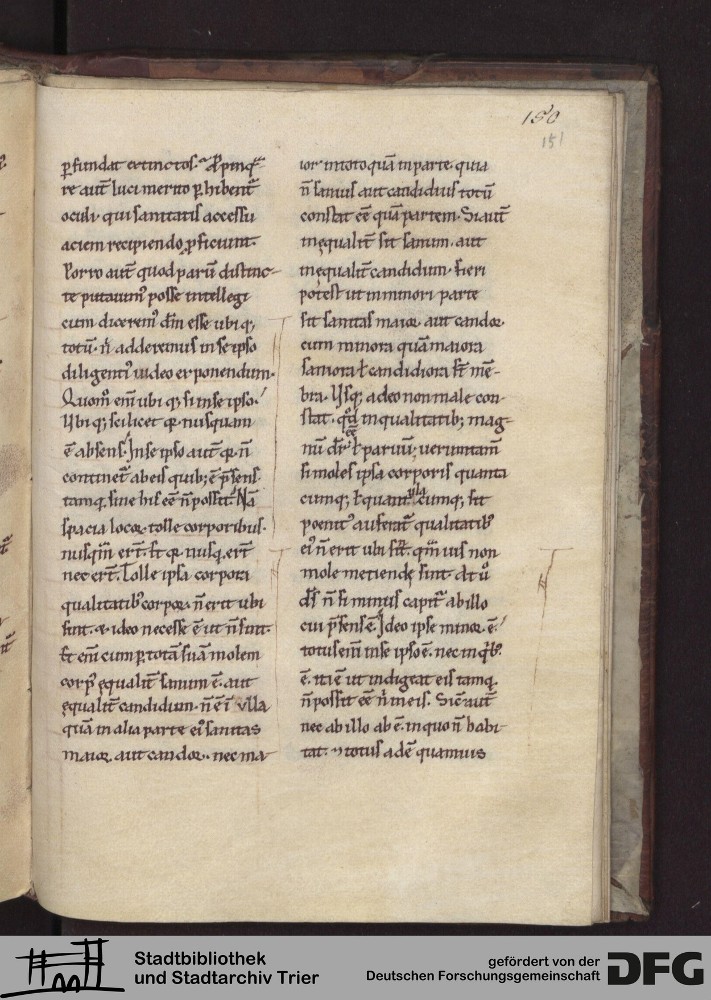 150
151
ꝑfundat extinctos.
re aut̄ luci merito ꝑhibent᷑
oculi. qui sanitatis accessu
aciem recipiendo ꝓficiunt.
Porro aut̄ quod parū distinc-
te putauim᷒ posse intellegi
cum dicerem᷒ dm̄ esse ubiq;
totū. ñ adderemus in se ipso
diligenti᷒ uideo exponendum.
Quom̊ eni ubiq; si in se ipso.
Ubiq; scilicet qꝛ nusquam
ē absens. In se ipso aut̄ qꝛ ñ
continet᷑ ab eis quib; ē p̄sens
tamq̄ sine his eē ñ possit. Nā
spacia locoꝝ tolle corporibus.
nusqm̄ ert̄. et qꝛ nusq̄ ert̄
nec ert̄. Tolle ipsa corpora
qualitatib᷒ corpoꝝ. ñ erit ubi
sint. & ideo necesse ē ut ñ sint.
Et eni cum ꝑ totā suā molem
corp᷒ ęqualit̄ sanum ē. aut
ęqualit̄ candidum. ñ ē ī ulla
quā in alia parte ei᷒ sanitas
maior. aut candor. nec ma
ior in toto quā in parte. quia
ñ sanius aut candidius totū
constat eē quā partem. Si aut̄
inęqualit̄ sit sanum. aut
inęqualit̄ candidum. fieri
potest ut in minori parte
sit sanitas maior. aut candor.
cum minora quā maiora
saniora ł candidiora st̄ mē-
bra. Usq; adeo non mole con-
stat. qd̄ in qualitatib; mag-
nū dr̄ ł paruū; ueruntam̄
si moles ipsa corporis quanta
cumq; ł quantulacumq; sit
penit᷒ auferat᷑ qualitatib᷒
ei᷒ ñ erit ubi sit. qm̄uis non
mole metiendę sint. At u̇
ds̄ ñ si minus capit᷑ ab illo
cui p̄sens ē. Ideo ipse minor ē.
totus eni in se ipso ē. nec in qb᷒.
ē. ita ē ut indigeat eis tamq̄
ñ possit eē ñ in eis. Sic aut̄
nec ab illo ab ē. in quo ñ habi
tat. & totus adē quamuis
Stadtbibliothek
und Stadtarchiv Trier
gefördert von der
Deutschen Forschungsgemeinschaft
DFG